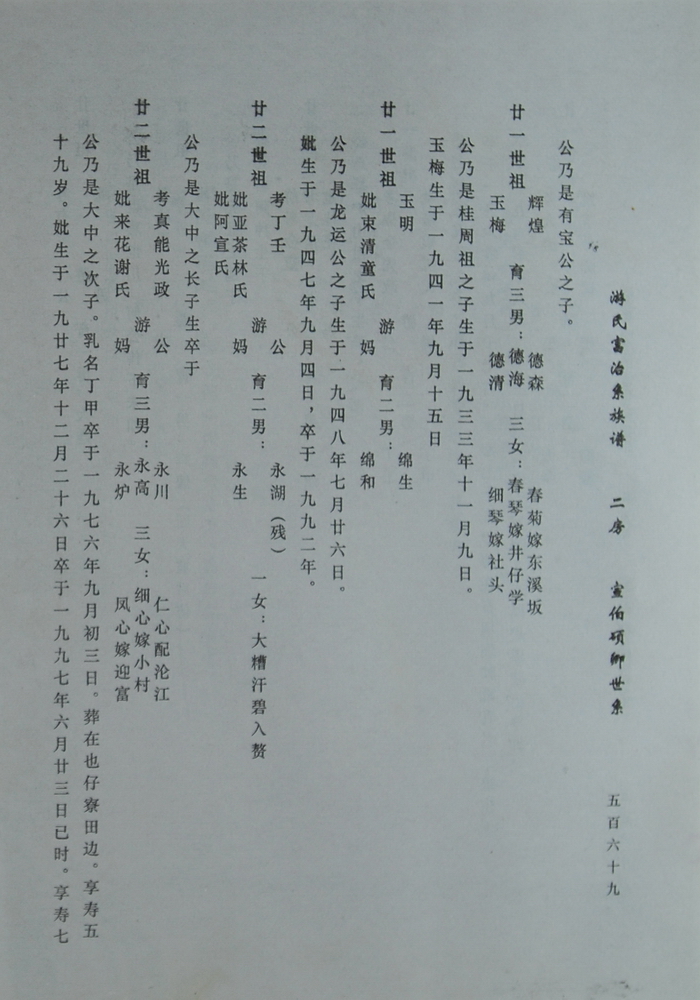 游氏富治系族谱 二房 宣伯硕卿世系 五百六十九
公乃是有宝公之子。
辉煌 德森 春菊嫁东溪坂
廿一世祖 育三男：德海 三女：春琴嫁井仔学
玉梅 德清 细琴嫁社头
公乃是桂周祖之子生于一九三三年十一月九日。
玉梅生于一九四一年九月十五日
玉明 绵生
廿一世祖 游 育二男：
妣束清童氏 妈 绵和
公乃是龙运公之子生于一九四八年七月廿六日。
妣生于一九四七年九月四日，卒于一九九二年。
考丁壬 公 永湖（残）
廿二世祖 游 育二男： 一女：大糟汗碧入赘
妣亚茶林氏 妈 永生
妣阿宣氏
公乃是大中之长子生卒于
考真能光政 公 永川 仁心配沦江
廿二世祖 游 育三男：永高 三女：细心嫁小村
妣来花谢氏 妈 永炉 凤心嫁迎富
公乃是大中之次子。乳名丁甲卒于一九七六年九月初三日。葬在也仔寮田边。享寿五
十九岁。妣生于一九廿七年十二月二十六日卒于一九九七年六月廿三日已时。享寿七